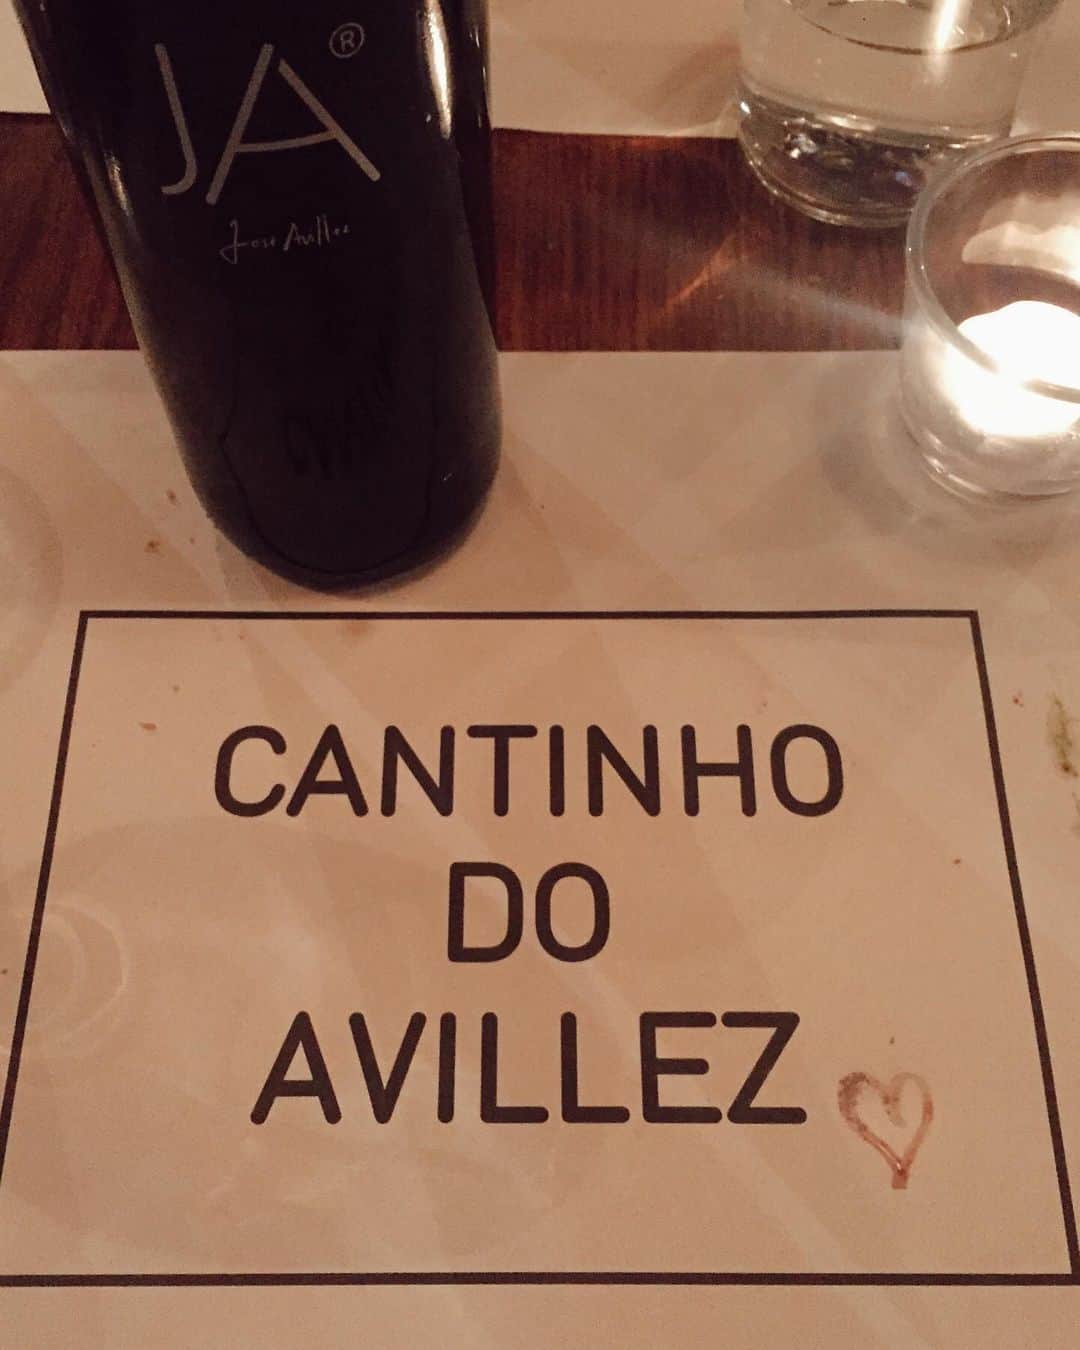 JA®
José Avillez
CANTINHO
DO
AVILLEZ